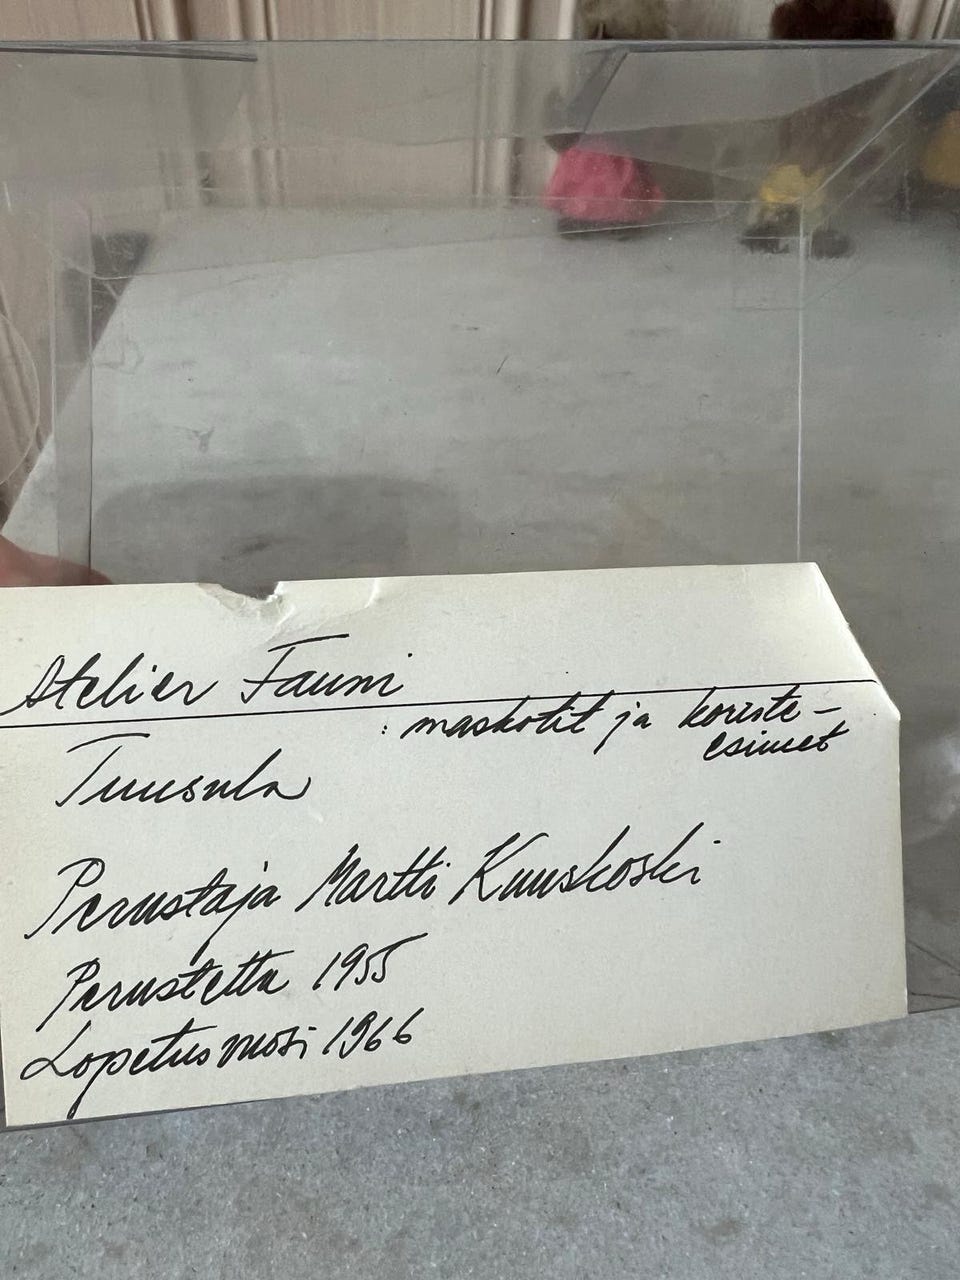 Atelier Fauni
: maskotit ja koriste-
esineet
Tuusula
Perustaja Martti Kuuskoski
Perustettu 1955
Lopetusvuosi 1966